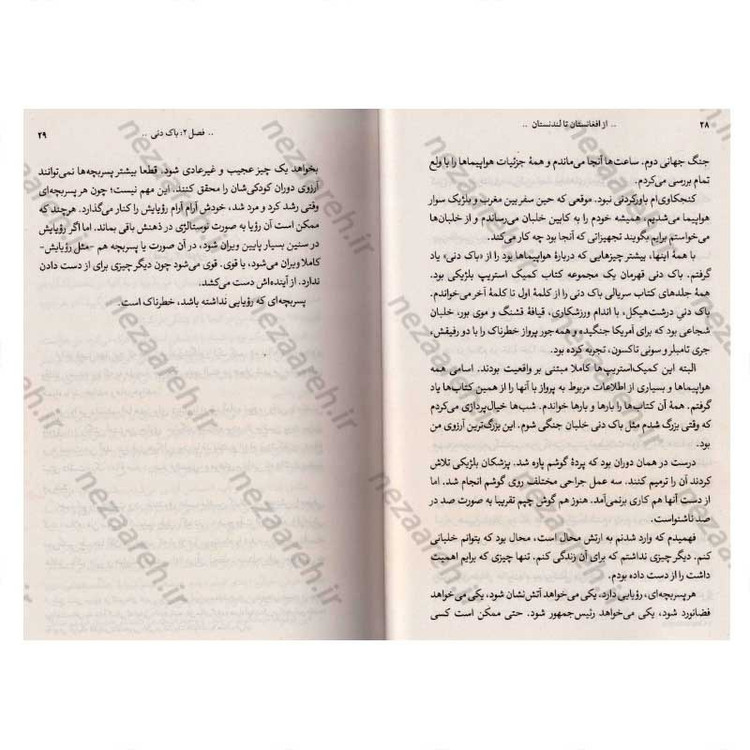 ۲۸ .. از افغانستان تا لندنستان ..
جنگ جهانی دوم. ساعت‌ها آنجا می‌ماندم و همهٔ جزئیات هواپیماها را با ولع
تمام بررسی می‌کردم.
کنجکاوی‌ام باورکردنی نبود. موقعی که حین سفر بین مغرب و بلژیک سوار
هواپیما می‌شدیم، همیشه خودم را به کابین خلبان می‌رساندم و از خلبان‌ها
می‌خواستم برایم بگویند تجهیزاتی که آنجا بود چه کار می‌کند.
با همهٔ اینها، بیشتر چیزهایی که دربارهٔ هواپیماها بود را از «باک دنی» یاد
گرفتم. باک دنی قهرمان یک مجموعه کتاب کمیک استریپ بلژیکی بود.
همهٔ جلدهای کتاب سریالی باک دنی را از کلمهٔ اول تا کلمهٔ آخر می‌خواندم.
باک دنیِ درشت‌هیکل، با اندام ورزشکاری، قیافهٔ قشنگ و موی بور، خلبان
شجاعی بود که برای آمریکا جنگیده و همه‌جور پرواز خطرناک را با دو رفیقش،
جری تامبلر و سونی تاکسون، تجربه کرده بود.
البته این کمیک‌استریپ‌ها کاملا مبتنی بر واقعیت بودند. اسامی همه
هواپیماها و بسیاری از اطلاعات مربوط به پرواز با آنها را از همین کتاب‌ها یاد
گرفتم. همهٔ آن کتاب‌ها را بارها و بارها خواندم. شب‌ها خیال‌پردازی می‌کردم
که وقتی بزرگ شدم مثل باک دنی خلبان جنگی شوم. این بزرگ‌ترین آرزوی من
بود.
درست در همان دوران بود که پردهٔ گوشم پاره شد. پزشکان بلژیکی تلاش
کردند آن را ترمیم کنند. سه عمل جراحی مختلف روی گوشم انجام شد. اما
از دست آنها هم کاری برنمی‌آمد. هنوز هم گوش چپم تقریبا به صورت صد در
صد ناشنواست.
فهمیدم که وارد شدنم به ارتش محال است، محال بود که بتوانم خلبانی
کنم. دیگر چیزی نداشتم که برای آن زندگی کنم. تنها چیزی که برایم اهمیت
داشت را از دست داده بودم.
هر پسربچه‌ای، رؤیایی دارد. یکی می‌خواهد آتش‌نشان شود، یکی می‌خواهد
فضانورد شود، یکی می‌خواهد رئیس‌جمهور شود. حتی ممکن است کسی
.. فصل ۲: باک دنی .. ۲۹
بخواهد یک چیز عجیب و غیرعادی شود. قطعا بیشتر پسربچه‌ها نمی‌توانند
آرزوی دوران کودکی‌شان را محقق کنند. این مهم نیست؛ چون هر پسربچه‌ای
وقتی رشد کرد و مرد شد، خودش آرام آرام رؤیایش را کنار می‌گذارد. هرچند که
ممکن است آن رؤیا به صورت نوستالژی در ذهنش باقی بماند. اما اگر رؤیایش
در سنین بسیار پایین ویران شود، در آن صورت یا پسربچه هم -مثل رؤیایش-
کاملا ویران می‌شود، یا قوی. قوی می‌شود چون دیگر چیزی برای از دست دادن
ندارد. از آینده‌اش دست می‌کشد.
پسربچه‌ای که رؤیایی نداشته باشد، خطرناک است.
nezaareh.ir
nezaareh.ir
nezaareh.ir
nezaareh.ir
nezaareh.ir
nezaareh.ir